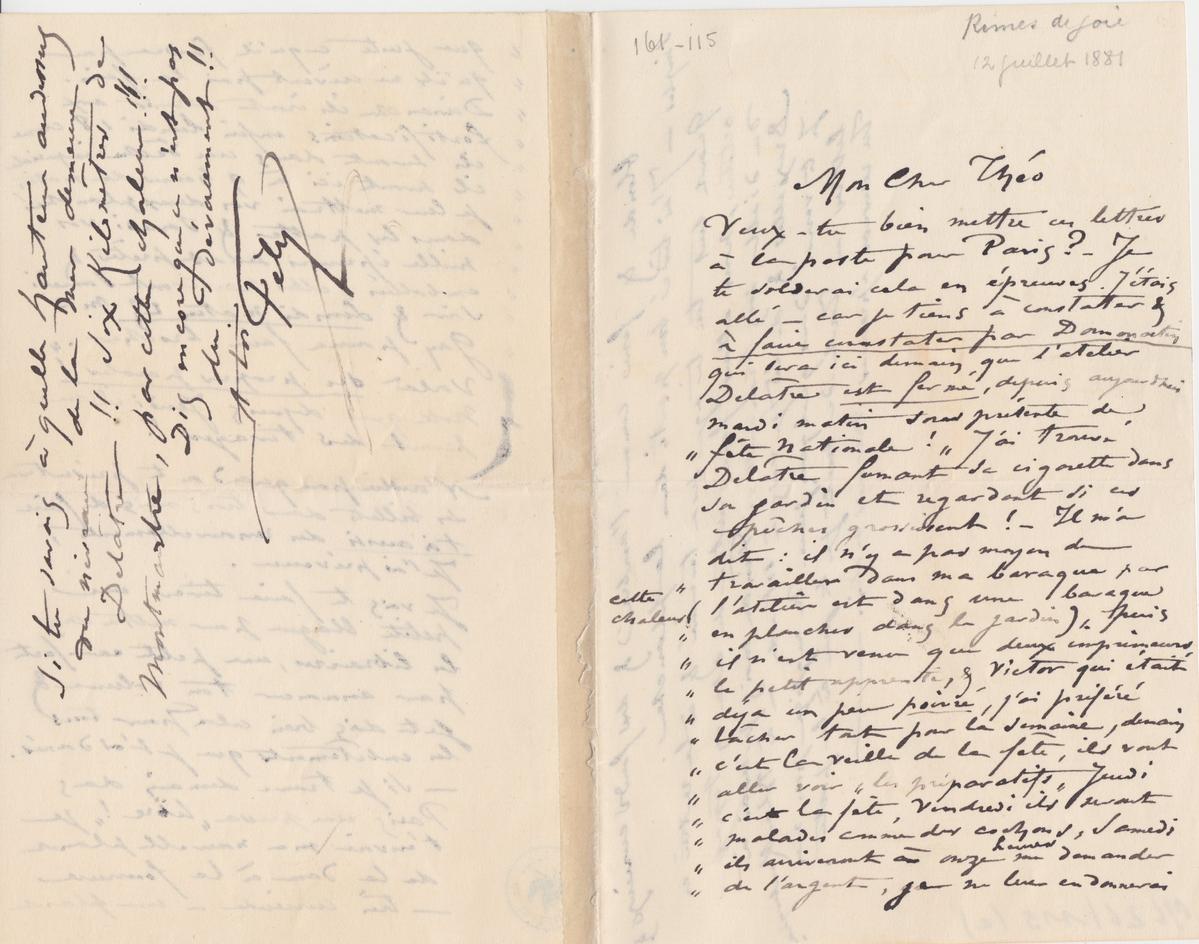 161-115
Rimes de joie
12 juillet 1881
Mon Cher Théo
Veux-tu bien mettre ces lettres
à la poste pour Paris? - Je
te solderai cela en épreuves. J'étais
allé - car je tiens à constater &
à faire constater par Dommartin
qui sera ici demain, que l'atelier
Delatre est fermé, depuis aujourd'hui
mardi matin sous prétexte de
„ fête Nationale! „ J'ai trouvé
Delatre fumant sa cigarette dans
son jardin et regardant si ses
pêches grossissent! - Il m'a
dit: il n'y a pas moyen de
„ travailler dans ma baraque par
cette chaleur (l'atelier est dans une baraque
„ en planches dans le jardin) „ puis
„ il n'est venu que deux imprimeurs
„ le petit apprenti, & Victor qui était
„ déja un peu poivré, j'ai préféré
„ lâcher tout pour la semaine, demain
„ c'est la veille de la fête, ils vont
„ aller voir „ les préparatifs „ Jeudi
„ c'est la fête, Vendredi ils seront
„ malades comme des cochons, Samedi
„ ils arriveront à onze heures me demander
„ de l'argent, je ne leur en donnerai
Si tu savais à quelle hauteur au dessus
du niveau de la Mer demeure
Delatre!! Six Kilomètres de
Montmartre, par cette chaleur!!!
Dis encore que ce n'est pas
du Dévouement!!
A toi
Fély